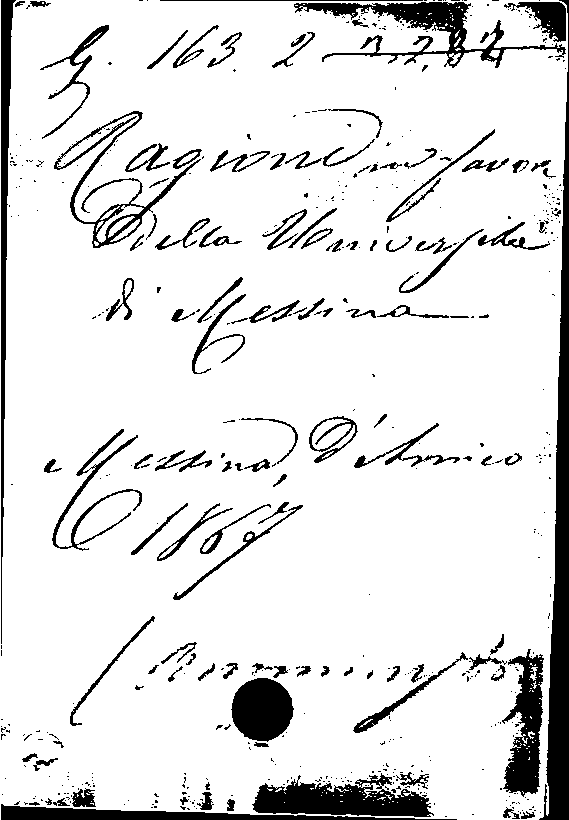 G. 163. 2
Ragioni in favore
della Università
di Messina
Messina, D'Amico
1867